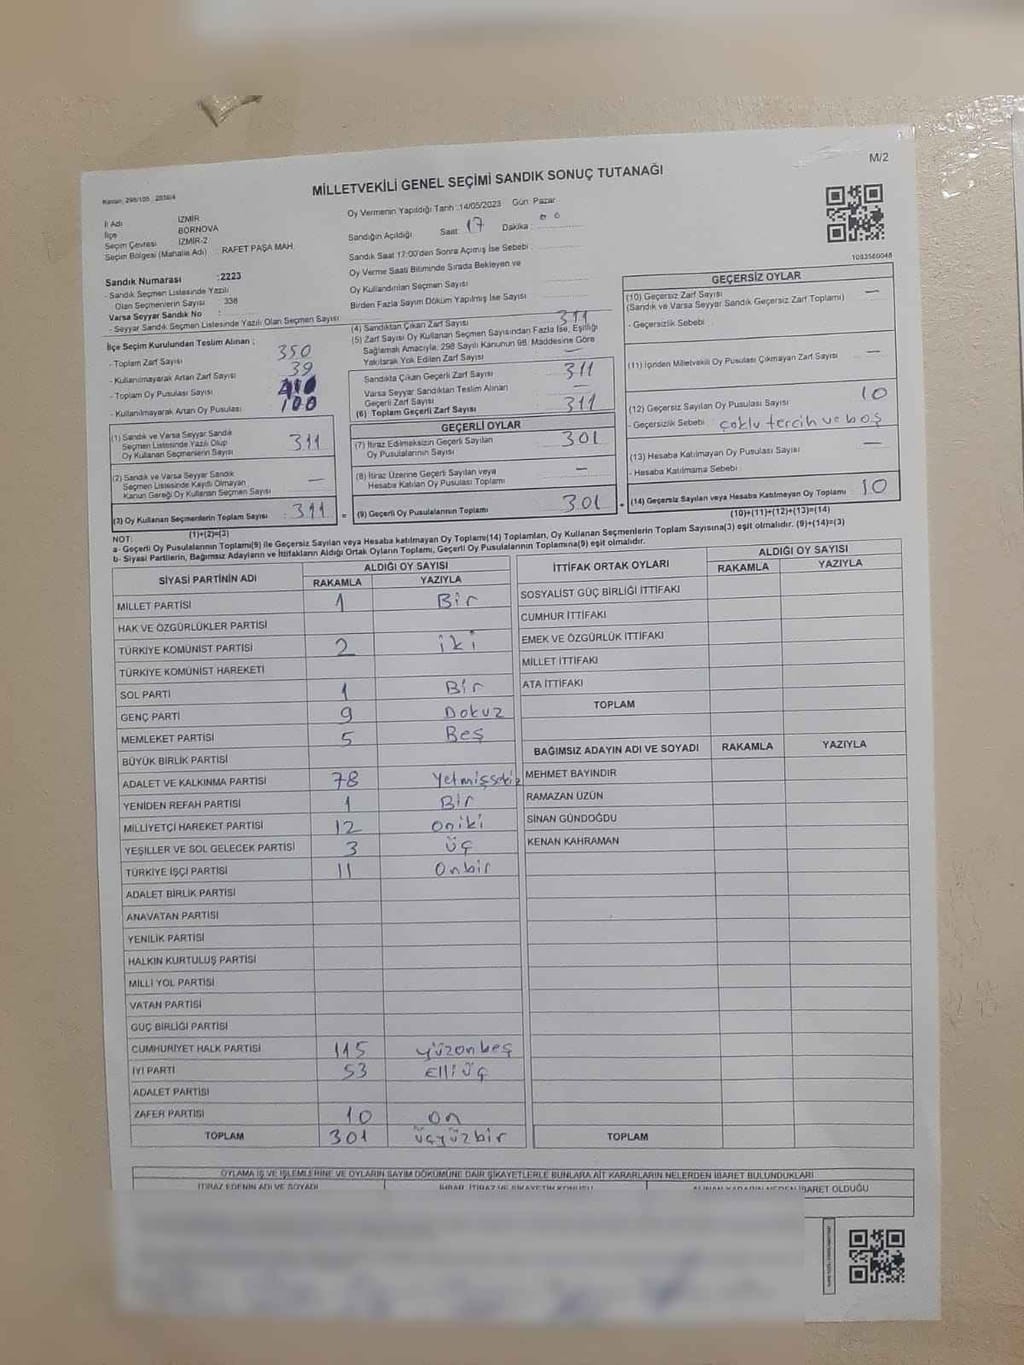 M/2
MİLLETVEKİLİ GENEL SEÇİMİ SANDIK SONUÇ TUTANAĞI
İl Adı İZMİR
İlçe BORNOVA
Seçim Çevresi İZMİR-2
Seçim Bölgesi (Mahalle Adı) : RAFET PAŞA MAH.
Sandık Numarası :2223
- Sandık Seçmen Listesinde Yazılı
Olan Seçmenlerin Sayısı : 338
Varsa Seyyar Sandık No :
- Seyyar Sandık Seçmen Listesinde Yazılı Olan Seçmen Sayısı
Oy Vermenin Yapıldığı Tarih :14/05/2023 Gün: Pazar
Sandığın Açıldığı Saat: 17 Dakika : 00
Sandık Saat 17:00'den Sonra Açılmış İse Sebebi :
Oy Verme Saati Bitiminde Sırada Bekleyen ve
Oy Kullandırılan Seçmen Sayısı
Birden Fazla Sayım Döküm Yapılmış İse Sayısı
İlçe Seçim Kurulundan Teslim Alınan :
- Toplam Zarf Sayısı 350
- Kullanılmayarak Artan Zarf Sayısı 39
- Toplam Oy Pusulası Sayısı
- Kullanılmayarak Artan Oy Pusulası 100
(1) Sandık ve Varsa Seyyar Sandık
Seçmen Listesinde Yazılı Olup
Oy Kullanan Seçmenlerin Sayısı 311
(2) Sandık ve Varsa Seyyar Sandık
Seçmen Listesinde Kaydı Olmayan
Kanun Gereği Oy Kullanan Seçmen Sayısı —
(3) Oy Kullanan Seçmenlerin Toplam Sayısı : 311
(1)+(2)=(3)
(4) Sandıktan Çıkan Zarf Sayısı 311
(5) Zarf Sayısı Oy Kullanan Seçmen Sayısından Fazla İse, Eşitliği
Sağlamak Amacıyla, 298 Sayılı Kanunun 98. Maddesine Göre
Yakılarak Yok Edilen Zarf Sayısı —
Sandıkta Çıkan Geçerli Zarf Sayısı 311
Varsa Seyyar Sandıktan Teslim Alınan
Geçerli Zarf Sayısı —
(6) Toplam Geçerli Zarf Sayısı 311
GEÇERLİ OYLAR
(7) İtiraz Edilmeksizin Geçerli Sayılan
Oy Pusulalarının Sayısı 301
(8) İtiraz Üzerine Geçerli Sayılan veya
Hesaba Katılan Oy Pusulası Toplamı —
= (9) Geçerli Oy Pusulalarının Toplamı 301
1093560048
GEÇERSİZ OYLAR
(10) Geçersiz Zarf Sayısı —
(Sandık ve Varsa Seyyar Sandık Geçersiz Zarf Toplamı)
- Geçersizlik Sebebi :
(11) İçinden Milletvekili Oy Pusulası Çıkmayan Zarf Sayısı —
(12) Geçersiz Sayılan Oy Pusulası Sayısı 10
- Geçersizlik Sebebi : çoklu tercih ve boş
(13) Hesaba Katılmayan Oy Pusulası Sayısı —
- Hesaba Katılmama Sebebi :
+ (14) Geçersiz Sayılan veya Hesaba Katılmayan Oy Toplamı 10
(10)+(11)+(12)+(13)=(14)
NOT:
a- Geçerli Oy Pusulalarının Toplamı(9) ile Geçersiz Sayılan veya Hesaba katılmayan Oy Toplamı(14) Toplamları, Oy Kullanan Seçmenlerin Toplam Sayısına(3) eşit olmalıdır. (9)+(14)=(3)
b- Siyasi Partilerin, Bağımsız Adayların ve İttifakların Aldığı Ortak Oyların Toplamı, Geçerli Oy Pusulalarının Toplamına(9) eşit olmalıdır.
SİYASİ PARTİNİN ADI ALDIĞI OY SAYISI
RAKAMLA YAZIYLA
MİLLET PARTİSİ 1 Bir
HAK VE ÖZGÜRLÜKLER PARTİSİ
TÜRKİYE KOMÜNİST PARTİSİ 2 iki
TÜRKİYE KOMÜNİST HAREKETİ
SOL PARTİ 1 Bir
GENÇ PARTİ 9 Dokuz
MEMLEKET PARTİSİ 5 Beş
BÜYÜK BİRLİK PARTİSİ
ADALET VE KALKINMA PARTİSİ 78 Yetmişsekiz
YENİDEN REFAH PARTİSİ 1 Bir
MİLLİYETÇİ HAREKET PARTİSİ 12 oniki
YEŞİLLER VE SOL GELECEK PARTİSİ 3 üç
TÜRKİYE İŞÇİ PARTİSİ 11 Onbir
ADALET BİRLİK PARTİSİ
ANAVATAN PARTİSİ
YENİLİK PARTİSİ
HALKIN KURTULUŞ PARTİSİ
MİLLİ YOL PARTİSİ
VATAN PARTİSİ
GÜÇ BİRLİĞİ PARTİSİ
CUMHURİYET HALK PARTİSİ 115 yüzonbeş
İYİ PARTİ 53 Elliüç
ADALET PARTİSİ
ZAFER PARTİSİ 10 on
TOPLAM 301 üçyüzbir
İTTİFAK ORTAK OYLARI ALDIĞI OY SAYISI
RAKAMLA YAZIYLA
SOSYALİST GÜÇ BİRLİĞİ İTTİFAKI
CUMHUR İTTİFAKI
EMEK VE ÖZGÜRLÜK İTTİFAKI
MİLLET İTTİFAKI
ATA İTTİFAKI
TOPLAM
BAĞIMSIZ ADAYIN ADI VE SOYADI RAKAMLA YAZIYLA
MEHMET BAYINDIR
RAMAZAN ÜZÜN
SİNAN GÜNDOĞDU
KENAN KAHRAMAN
TOPLAM
OYLAMA İŞ VE İŞLEMLERİNE VE OYLARIN SAYIM DÖKÜMÜNE DAİR ŞİKAYETLERLE BUNLARA AİT KARARLARIN NELERDEN İBARET BULUNDUKLARI
İTİRAZ EDENİN ADI VE SOYADI İHBAR, İTİRAZ VE ŞİKAYETİN KONUSU ALINAN KARARIN NEDEN İBARET OLDUĞU